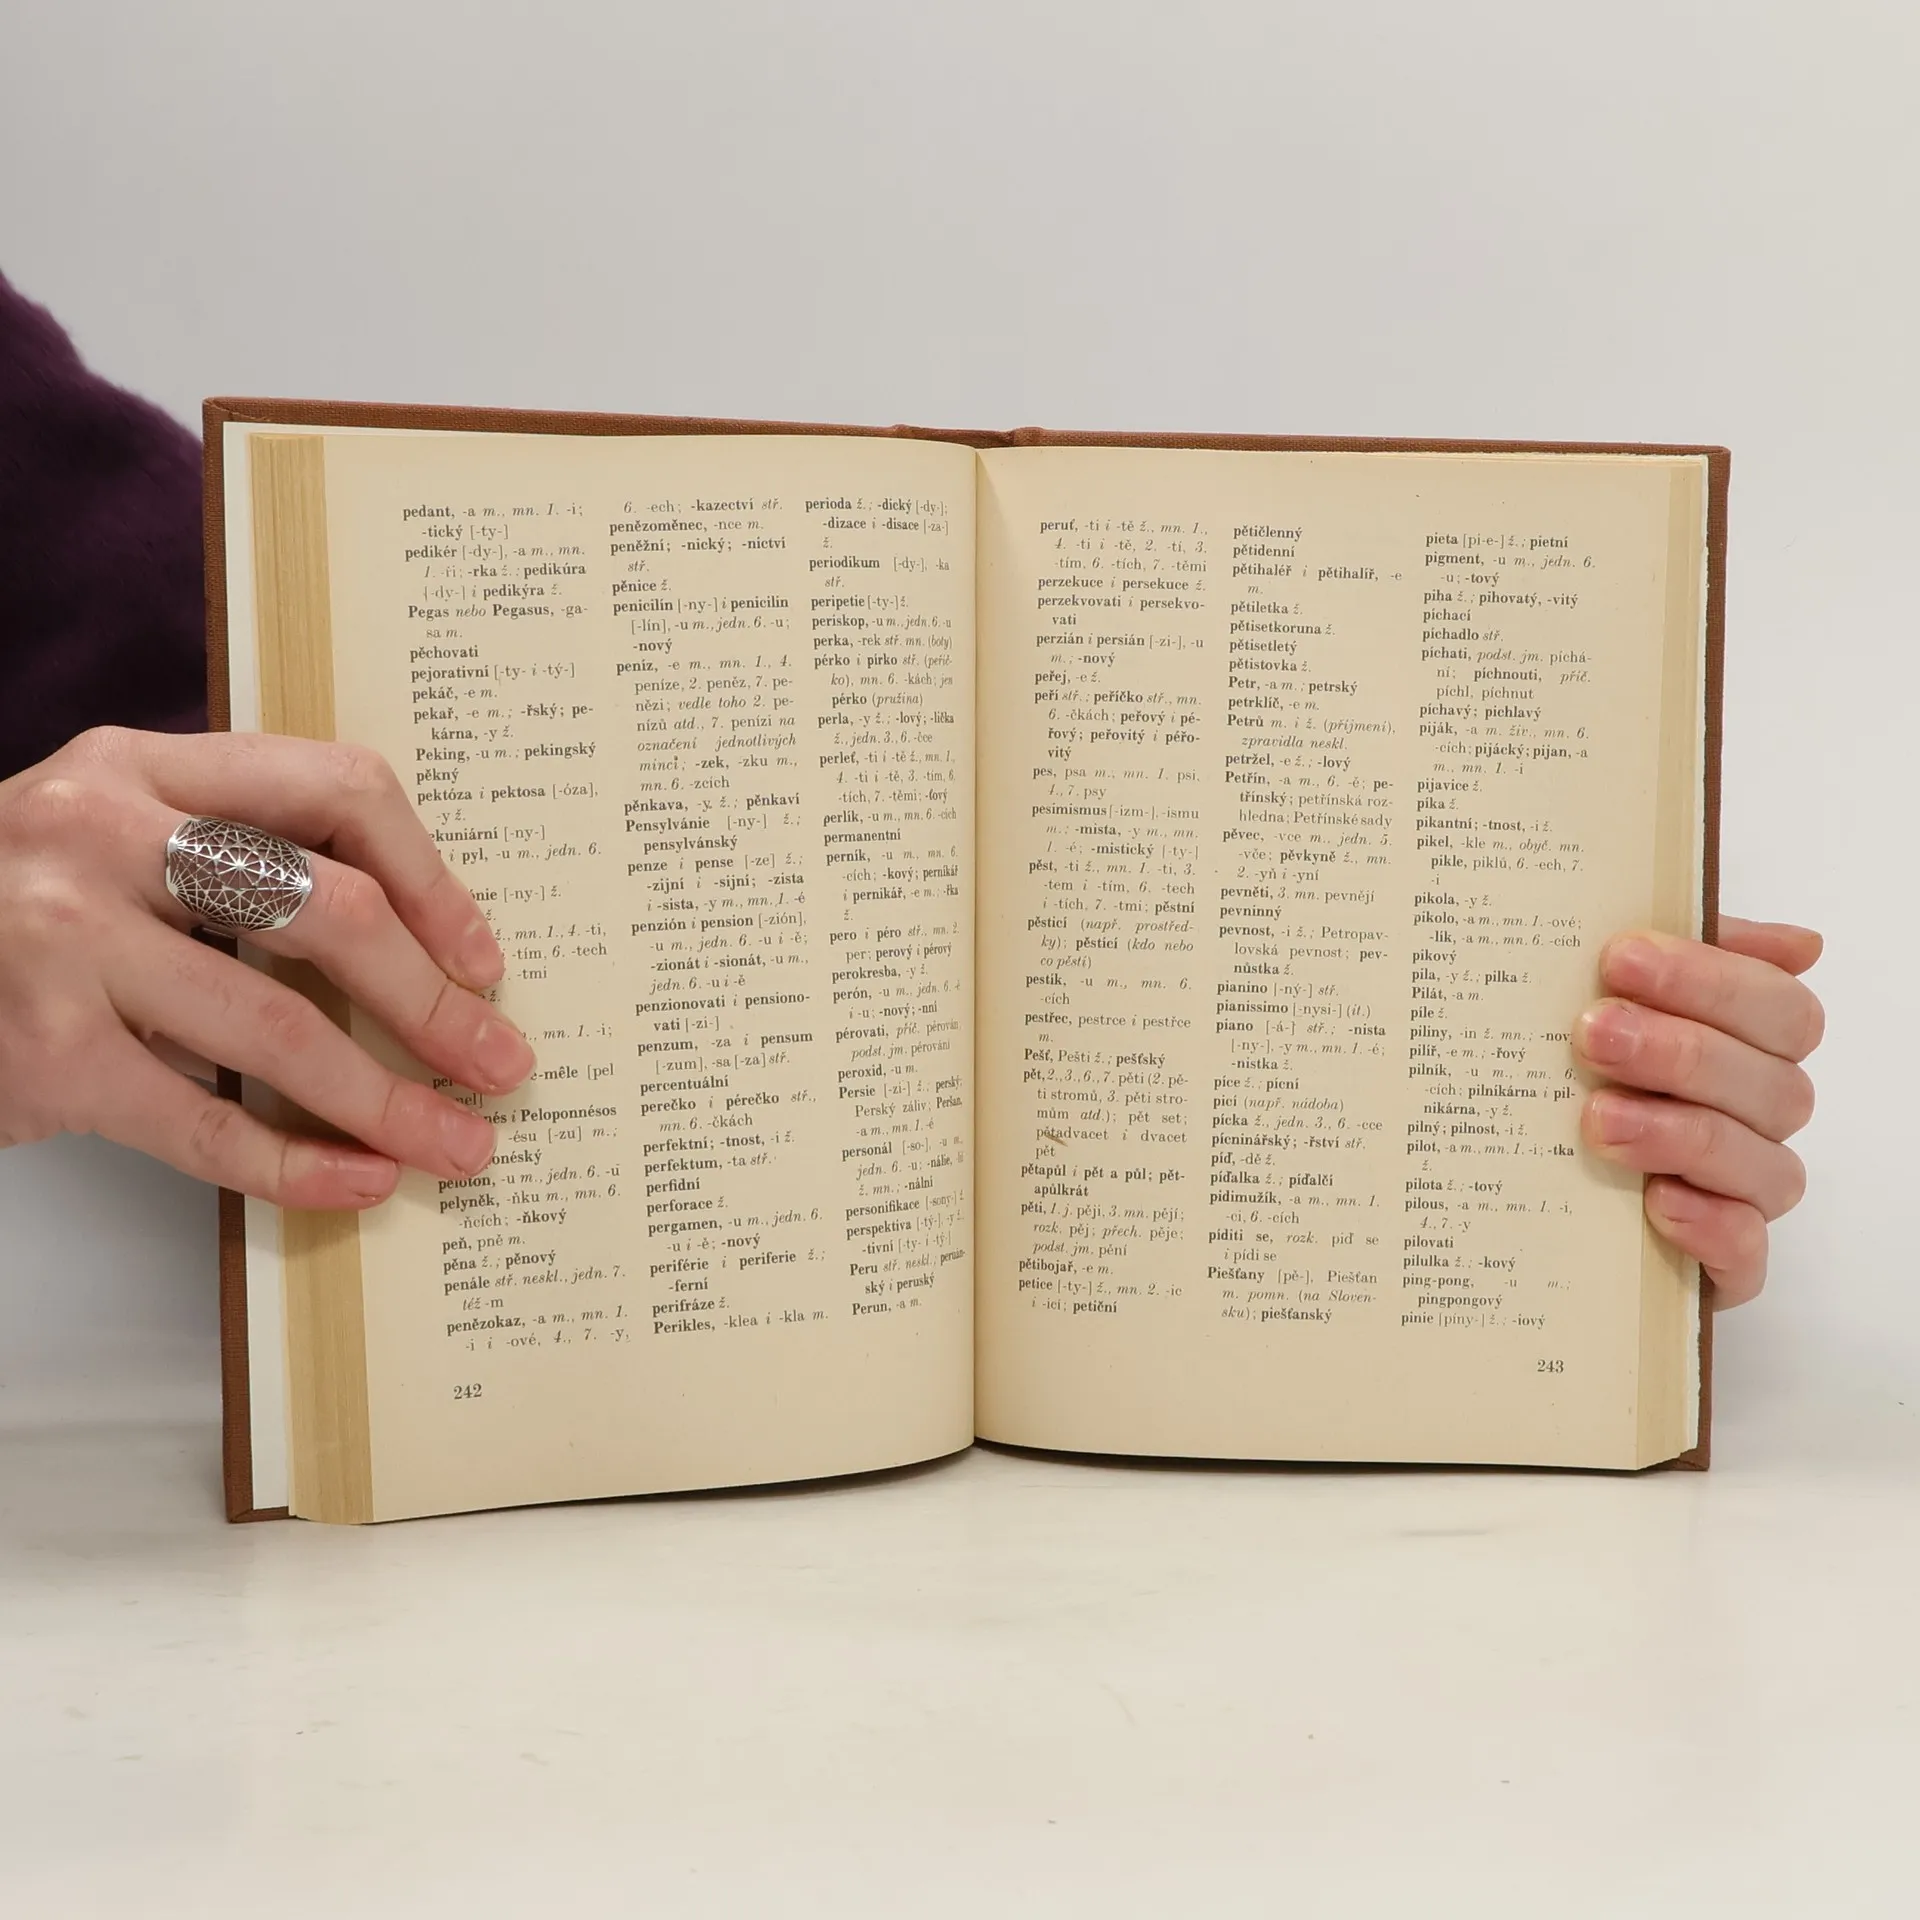 pedant, -a m., mn. 1. -i;
-tický [-ty-]
pedikér [-dy-], -a m., mn.
1. -ři; -rka ž.; pedikúra
[-dy-] i pedikýra ž.
Pegas nebo Pegasus, -ga-
sa m.
pěchovati
pejorativní [-ty- i -tý-]
pekáč, -e m.
pekař, -e m.; -řský; pe-
kárna, -y ž.
Peking, -u m.; pekingský
pěkný
pektóza i pektosa [-óza],
-y ž.
kuniární [-ny-]
i pyl, -u m., jedn. 6.
nie [-ny-] ž.
ž.
ž., mn. 1., 4. -ti,
-tím, 6. -tech
-tmi
ž.
, mn. 1. -i;
-mêle [pel
mel]
nés i Peloponnésos
-ésu [-zu] m.;
onéský
peloton, -u m., jedn. 6. -u
pelyněk, -ňku m., mn. 6.
-ňcích; -ňkový
peň, pně m.
pěna ž.; pěnový
penále stř. neskl., jedn. 7.
též -m
penězokaz, -a m., mn. 1.
-i i -ové, 4., 7. -y,
6. -ech; -kazectví stř.
penězoměnec, -nce m.
peněžní; -nický; -nictví
stř.
pěnice ž.
penicilín [-ny-] i penicilin
[-lín], -u m., jedn. 6. -u;
-nový
peníz, -e m., mn. 1., 4.
peníze, 2. peněz, 7. pe-
nězi; vedle toho 2. pe-
nízů atd., 7. penízi na
označení jednotlivých
mincí; -zek, -zku m.,
mn. 6. -zcích
pěnkava, -y ž.; pěnkaví
Pensylvánie [-ny-] ž.;
pensylvánský
penze i pense [-ze] ž.;
-zijní i -sijní; -zista
i -sista, -y m., mn. 1. -é
penzión i pension [-zión],
-u m., jedn. 6. -u i -ě;
-zionát i -sionát, -u m.,
jedn. 6. -u i -ě
penzionovati i pensiono-
vati [-zi-]
penzum, -za i pensum
[-zum], -sa [-za] stř.
percentuální
perečko i pérečko stř.,
mn. 6. -čkách
perfektní; -tnost, -i ž.
perfektum, -ta stř.
perfidní
perforace ž.
pergamen, -u m., jedn. 6.
-u i -ě; -nový
periférie i periferie ž.;
-ferní
perifráze ž.
Perikles, -klea i -kla m.
perioda ž.; -dický [-dy-];
-dizace i -disace [-za-]
ž.
periodikum [-dy-], -ka
stř.
peripetie [-ty-] ž.
periskop, -u m., jedn. 6. -u
perka, -rek stř. mn. (boty)
pérko i pírko stř. (peříč-
ko), mn. 6. -kách; jen
pérko (pružina)
perla, -y ž.; -lový; -lička
ž., jedn. 3., 6. -čce
perleť, -ti i -tě ž., mn. 1.,
4. -ti i -tě, 3. -tím, 6.
-tích, 7. -těmi; -ťový
perlík, -u m., mn. 6. -cích
permanentní
perník, -u m., mn. 6.
-cích; -kový; perníkář
i pernikář, -e m.; -řka
ž.
pero i péro stř., mn. 2.
per; perový i pérový
perokresba, -y ž.
perón, -u m., jedn. 6. -ě
i -u; -nový; -nní
pérovati, příč. pérován,
podst. jm. pérování
peroxid, -u m.
Persie [-zi-] ž.; perský;
Perský záliv; Peršan,
-a m., mn. 1. -é
personál [-so-], -u m.,
jedn. 6. -u; -nálie, -lií
ž. mn.; -nální
personifikace [-sony-] ž.
perspektiva [-tý-], -y ž.
-tivní [-ty- i -tý-]
Peru stř. neskl.; peruán-
ský i peruský
Perun, -a m.
242
peruť, -ti i -tě ž., mn. 1.,
4. -ti i -tě, 2. -tí, 3.
-tím, 6. -tích, 7. -těmi
perzekuce i persekuce ž.
perzekvovati i persekvo-
vati
perzián i persián [-zi-], -u
m.; -nový
peřej, -e ž.
peří stř.; peříčko stř., mn.
6. -čkách; peřový i pé-
řový; peřovitý i péřo-
vitý
pes, psa m., mn. 1. psi,
4., 7. psy
pesimismus [-izm-], -ismu
m.; -mista, -y m., mn.
1. -é; -mistický [-ty-]
pěst, -ti ž., mn. 1. -ti, 3.
-tem i -tím, 6. -tech
i -tích, 7. -tmi; pěstní
pěsticí (např. prostřed-
ky); pěstící (kdo nebo
co pěstí)
pestík, -u m., mn. 6.
-cích
pestřec, pestrce i pestřce
m.
Pešť, Pešti ž.; pešťský
pět, 2., 3., 6., 7. pěti (2. pě-
ti stromů, 3. pěti stro-
mům atd.); pět set;
pětadvacet i dvacet
pět
pětapůl i pět a půl; pět-
apůlkrát
pěti, 1. j. pěji, 3. mn. pějí;
rozk. pěj; přech. pěje;
podst. jm. pění
pětibojař, -e m.
petice [-ty-] ž., mn. 2. -ic
i -icí; petiční
pětičlenný
pětidenní
pětihaléř i pětihalíř, -e
m.
pětiletka ž.
pětisetkoruna ž.
pětisetletý
pětistovka ž.
Petr, -a m.; petrský
petrklíč, -e m.
Petrů m. i ž. (příjmení),
zpravidla neskl.
petržel, -e ž.; -lový
Petřín, -a m., 6. -ě; pe-
třínský; petřínská roz-
hledna; Petřínské sady
pěvec, -vce m., jedn. 5.
-vče; pěvkyně ž., mn.
2. -yň i -yní
pevněti, 3. mn. pevnějí
pevninný
pevnost, -i ž.; Petropav-
lovská pevnost; pev-
nůstka ž.
pianino [-ný-] stř.
pianissimo [-nysi-] (it.)
piano [-á-] stř.; -nista
[-ny-], -y m., mn. 1. -é;
-nistka ž.
píce ž.; pícní
picí (např. nádoba)
pícka ž., jedn. 3., 6. -cce
pícninářský; -řství stř.
píď, -dě ž.
píďalka ž.; píďalčí
pidimužík, -a m., mn. 1.
-ci, 6. -cích
píditi se, rozk. piď se
i pídi se
Piešťany [pě-], Piešťan
m. pomn. (na Sloven-
sku); piešťanský
pieta [pi-e-] ž.; pietní
pigment, -u m., jedn. 6.
-u; -tový
piha ž.; pihovatý, -vitý
píchací
píchadlo stř.
píchati, podst. jm. píchá-
ní; píchnouti, příč.
píchl, píchnut
píchavý; pichlavý
piják, -a m. živ., mn. 6.
-cích; pijácký; pijan, -a
m., mn. 1. -i
pijavice ž.
píka ž.
pikantní; -tnost, -i ž.
pikel, -kle m., obyč. mn.
pikle, piklů, 6. -ech, 7.
-i
pikola, -y ž.
pikolo, -a m., mn. 1. -ové;
-lík, -a m., mn. 6. -cích
pikový
pila, -y ž.; pilka ž.
Pilát, -a m.
píle ž.
piliny, -in ž. mn.; -nov
pilíř, -e m.; -řový
pilník, -u m., mn. 6.
-cích; pilníkárna i pil-
nikárna, -y ž.
pilný; pilnost, -i ž.
pilot, -a m., mn. 1. -i; -tka
ž.
pilota ž.; -tový
pilous, -a m., mn. 1. -i,
4., 7. -y
pilovati
pilulka ž.; -kový
ping-pong, -u m.;
pingpongový
pinie [piny-] ž.; -iový
243